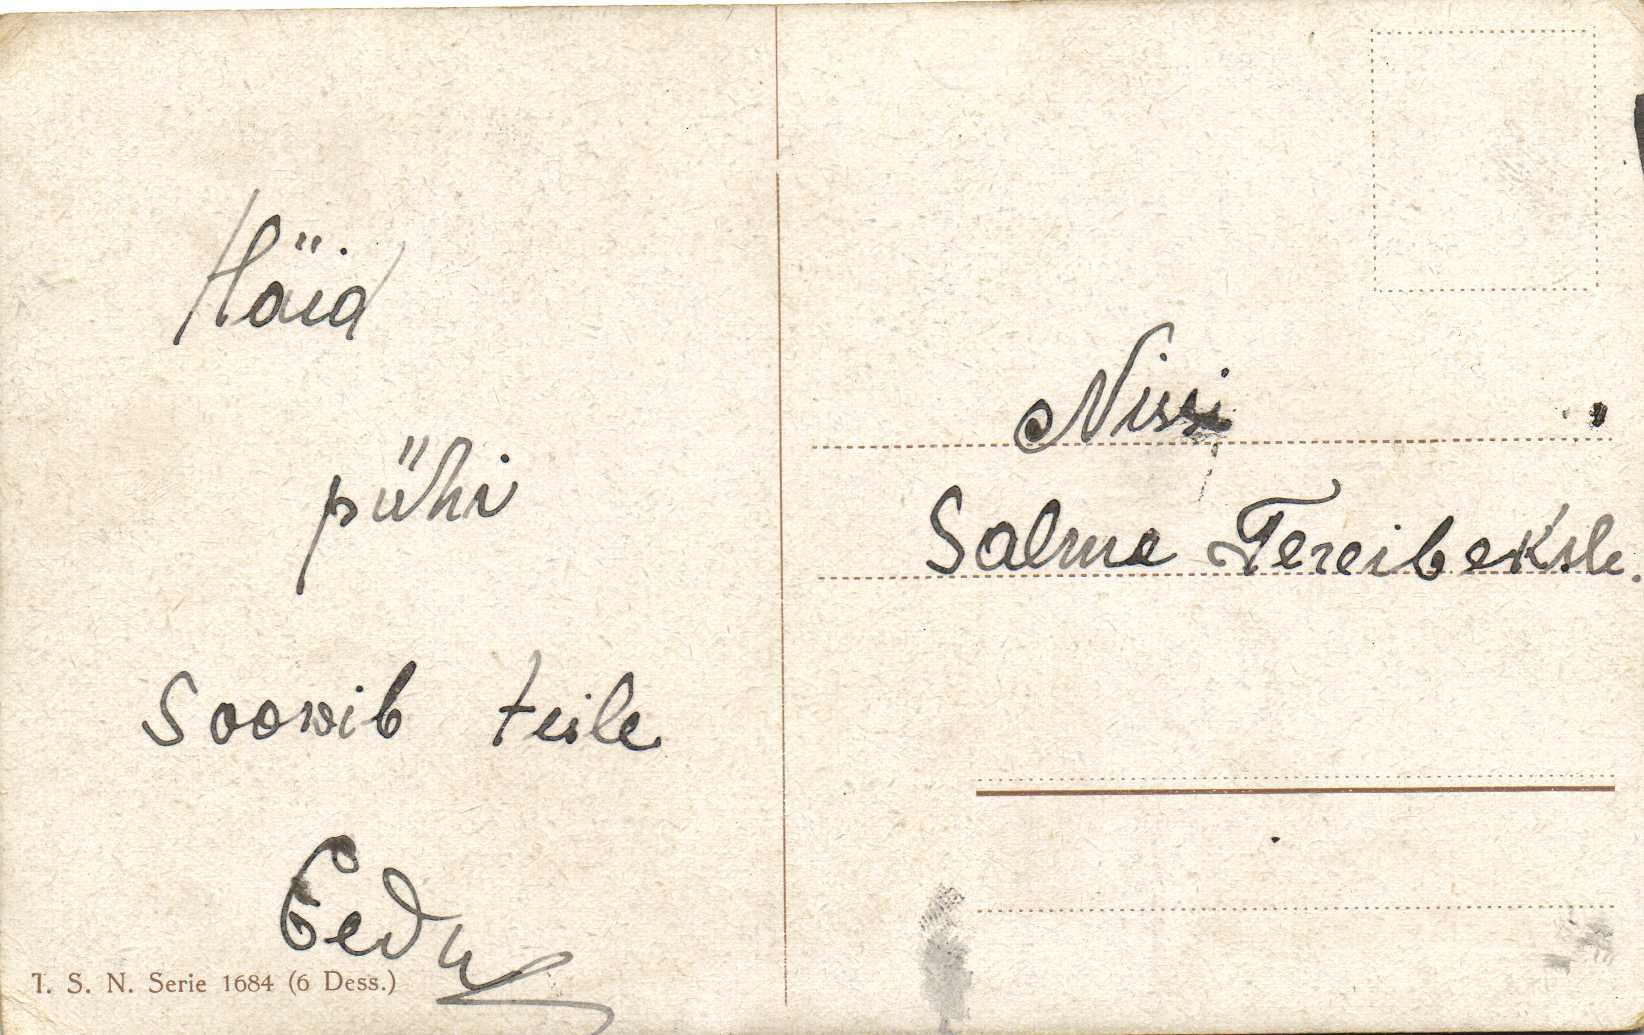 Häid
pühi
Soowib teile
Eedu
T. S. N. Serie 1684 (6 Dess.)
Nissi
Salme Fereibeksle.